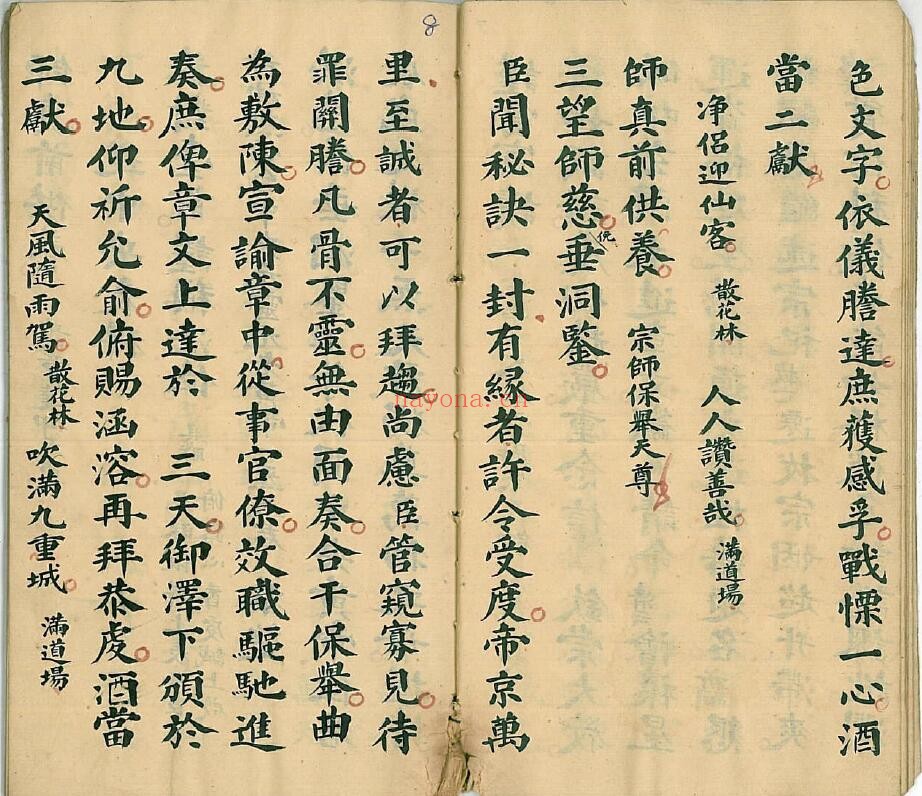 色文字。依儀謄達。庶獲感孚。戰慄一心。酒
當二獻。
净侣迎仙客。 散花林 人人讚善哉。 滿道場
師真前供養。 宗師保舉天尊
三望師慈。俯垂洞鑒。
臣聞秘訣一封。有緣者許令受度。帝京萬
里。至誠者可以拜趨。尚慮臣管窺寡見。待
罪關謄。凡骨不靈。無由面奏。合干保舉。曲
為敷陳。宣諭章中。從事官僚。效職驅馳。進
奏。庶俾章文上達於 三天。御澤下頒於
九地。仰祈允俞。俯賜涵溶。再拜恭虔。酒當
三獻。 天風隨雨駕。 散花林 吹滿九重城。 滿道場
8
nayona.cn